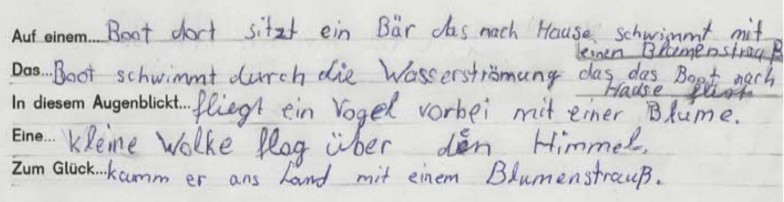 Auf einem... Boot dort sitzt ein Bär das nach Hause schwimmt mit
einen Blumenstrauß
Das... Boot schwimmt durch die Wasserströmung das das Boot nach
Hause
In diesem Augenblickt... fliegt ein Vogel vorbei mit einer Blume.
Eine... kleine Wolke flog über den Himmel.
Zum Glück... kamm er ans Land mit einem Blumenstrauß.